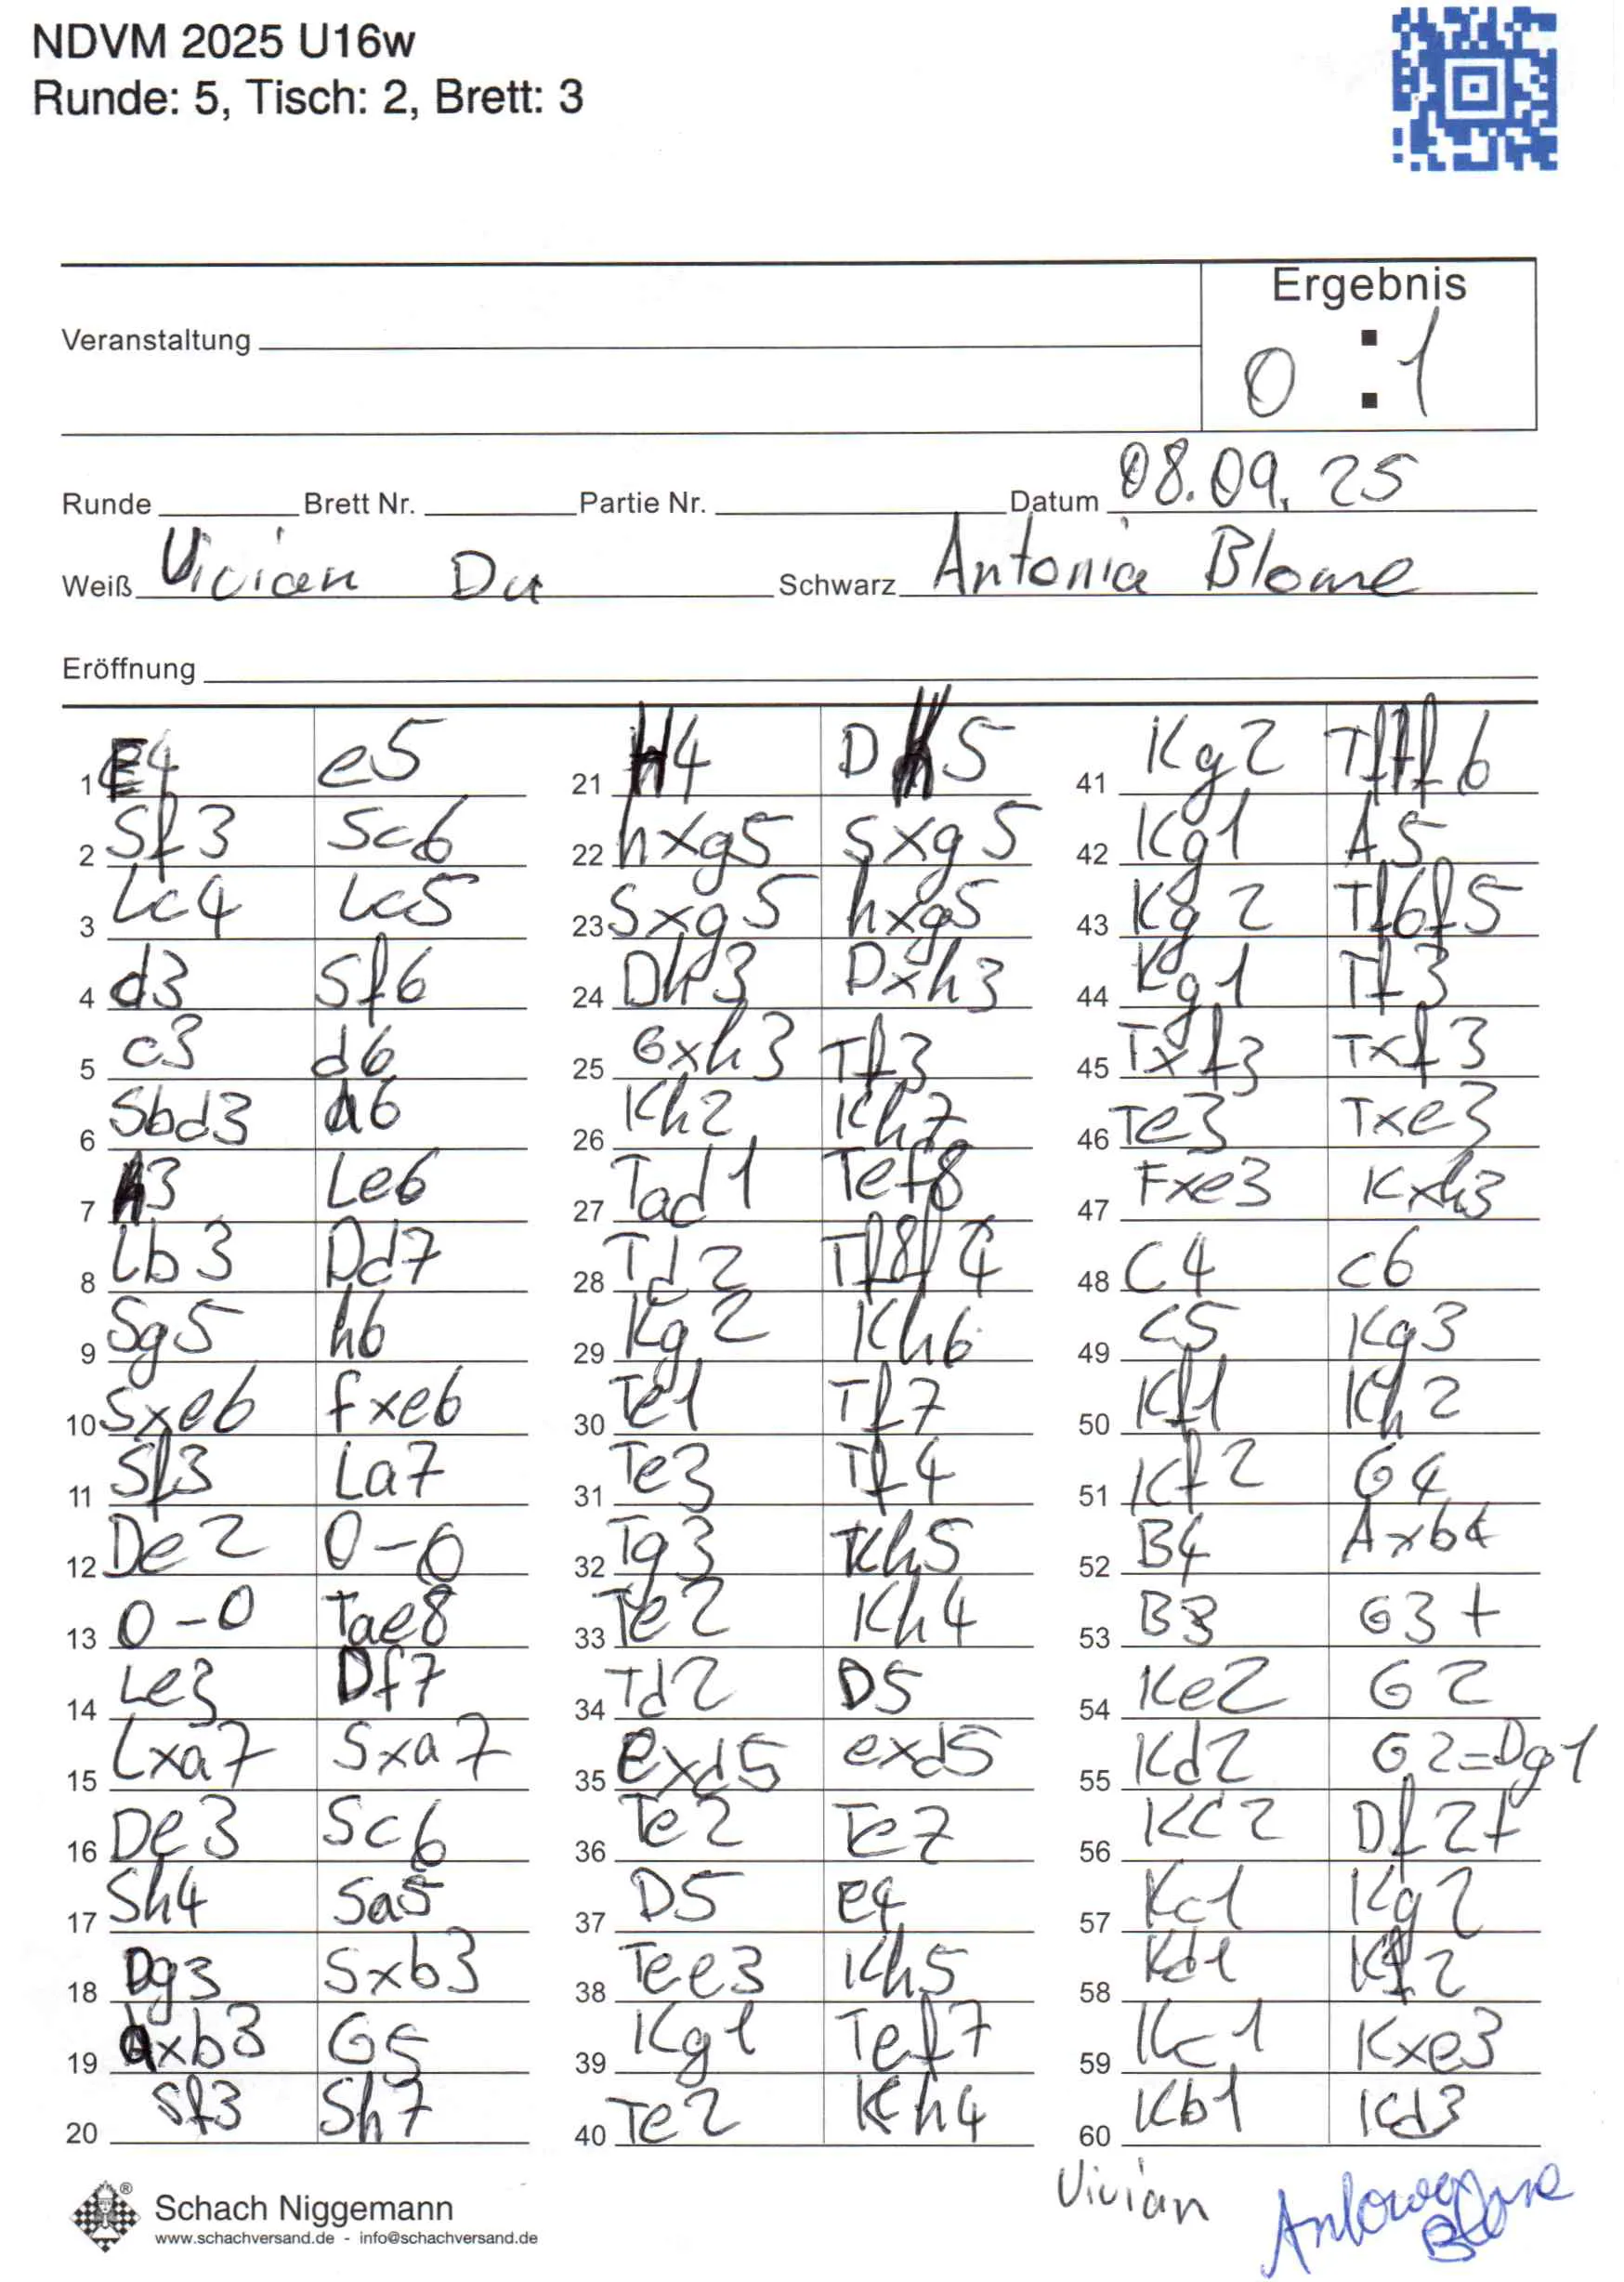 NDVM 2025 U16w
Runde: 5, Tisch: 2, Brett: 3
Ergebnis
Veranstaltung
0 : 1
Runde Brett Nr. Partie Nr. Datum 08.09.25
Weiß Vivian Du Schwarz Antonia Blome
Eröffnung
1 E4 e5
2 Sf3 Sc6
3 Lc4 Lc5
4 d3 Sf6
5 c3 d6
6 Sbd3 a6
7 h3 Le6
8 Lb3 Dd7
9 Sg5 h6
10 Sxe6 fxe6
11 Sf3 La7
12 De2 0-0
13 0-0 Tae8
14 Le3 Df7
15 Lxa7 Sxa7
16 De3 Sc6
17 Sh4 Sa5
18 Dg3 Sxb3
19 axb3 G5
20 Sf3 Sh7
21 H4 Dh5
22 hxg5 Sxg5
23 Sxg5 hxg5
24 Dh3 Dxh3
25 Gxh3 Tf3
26 Kh2 Kh7
27 Tad1 Tef8
28 Td2 Tf8f4
29 Kg2 Kh6
30 Te1 Tf7
31 Te3 Tf4
32 Tg3 Kh5
33 Te2 Kh4
34 Td2 D5
35 exd5 exd5
36 Te2 Te7
37 D5 e4
38 Tee3 Kh5
39 Kg1 Tef7
40 Te2 Kh4
41 Kg2 Tf7f6
42 Kg1 A5
43 Kg2 Tf6f5
44 Kg1 Tf3
45 Txf3 Txf3
46 Te3 Txe3
47 Fxe3 Kxh3
48 C4 c6
49 C5 Kg3
50 Kf1 Kh2
51 Kf2 G4
52 B4 Axb4
53 B3 G3+
54 Ke2 G2
55 Kd2 G2=Dg1
56 Kc2 Df2+
57 Kc1 Kg2
58 Kd1 Kf2
59 Kc1 Kxe3
60 Kb1 Kd3
Vivian
Schach Niggemann
www.schachversand.de - info@schachversand.de